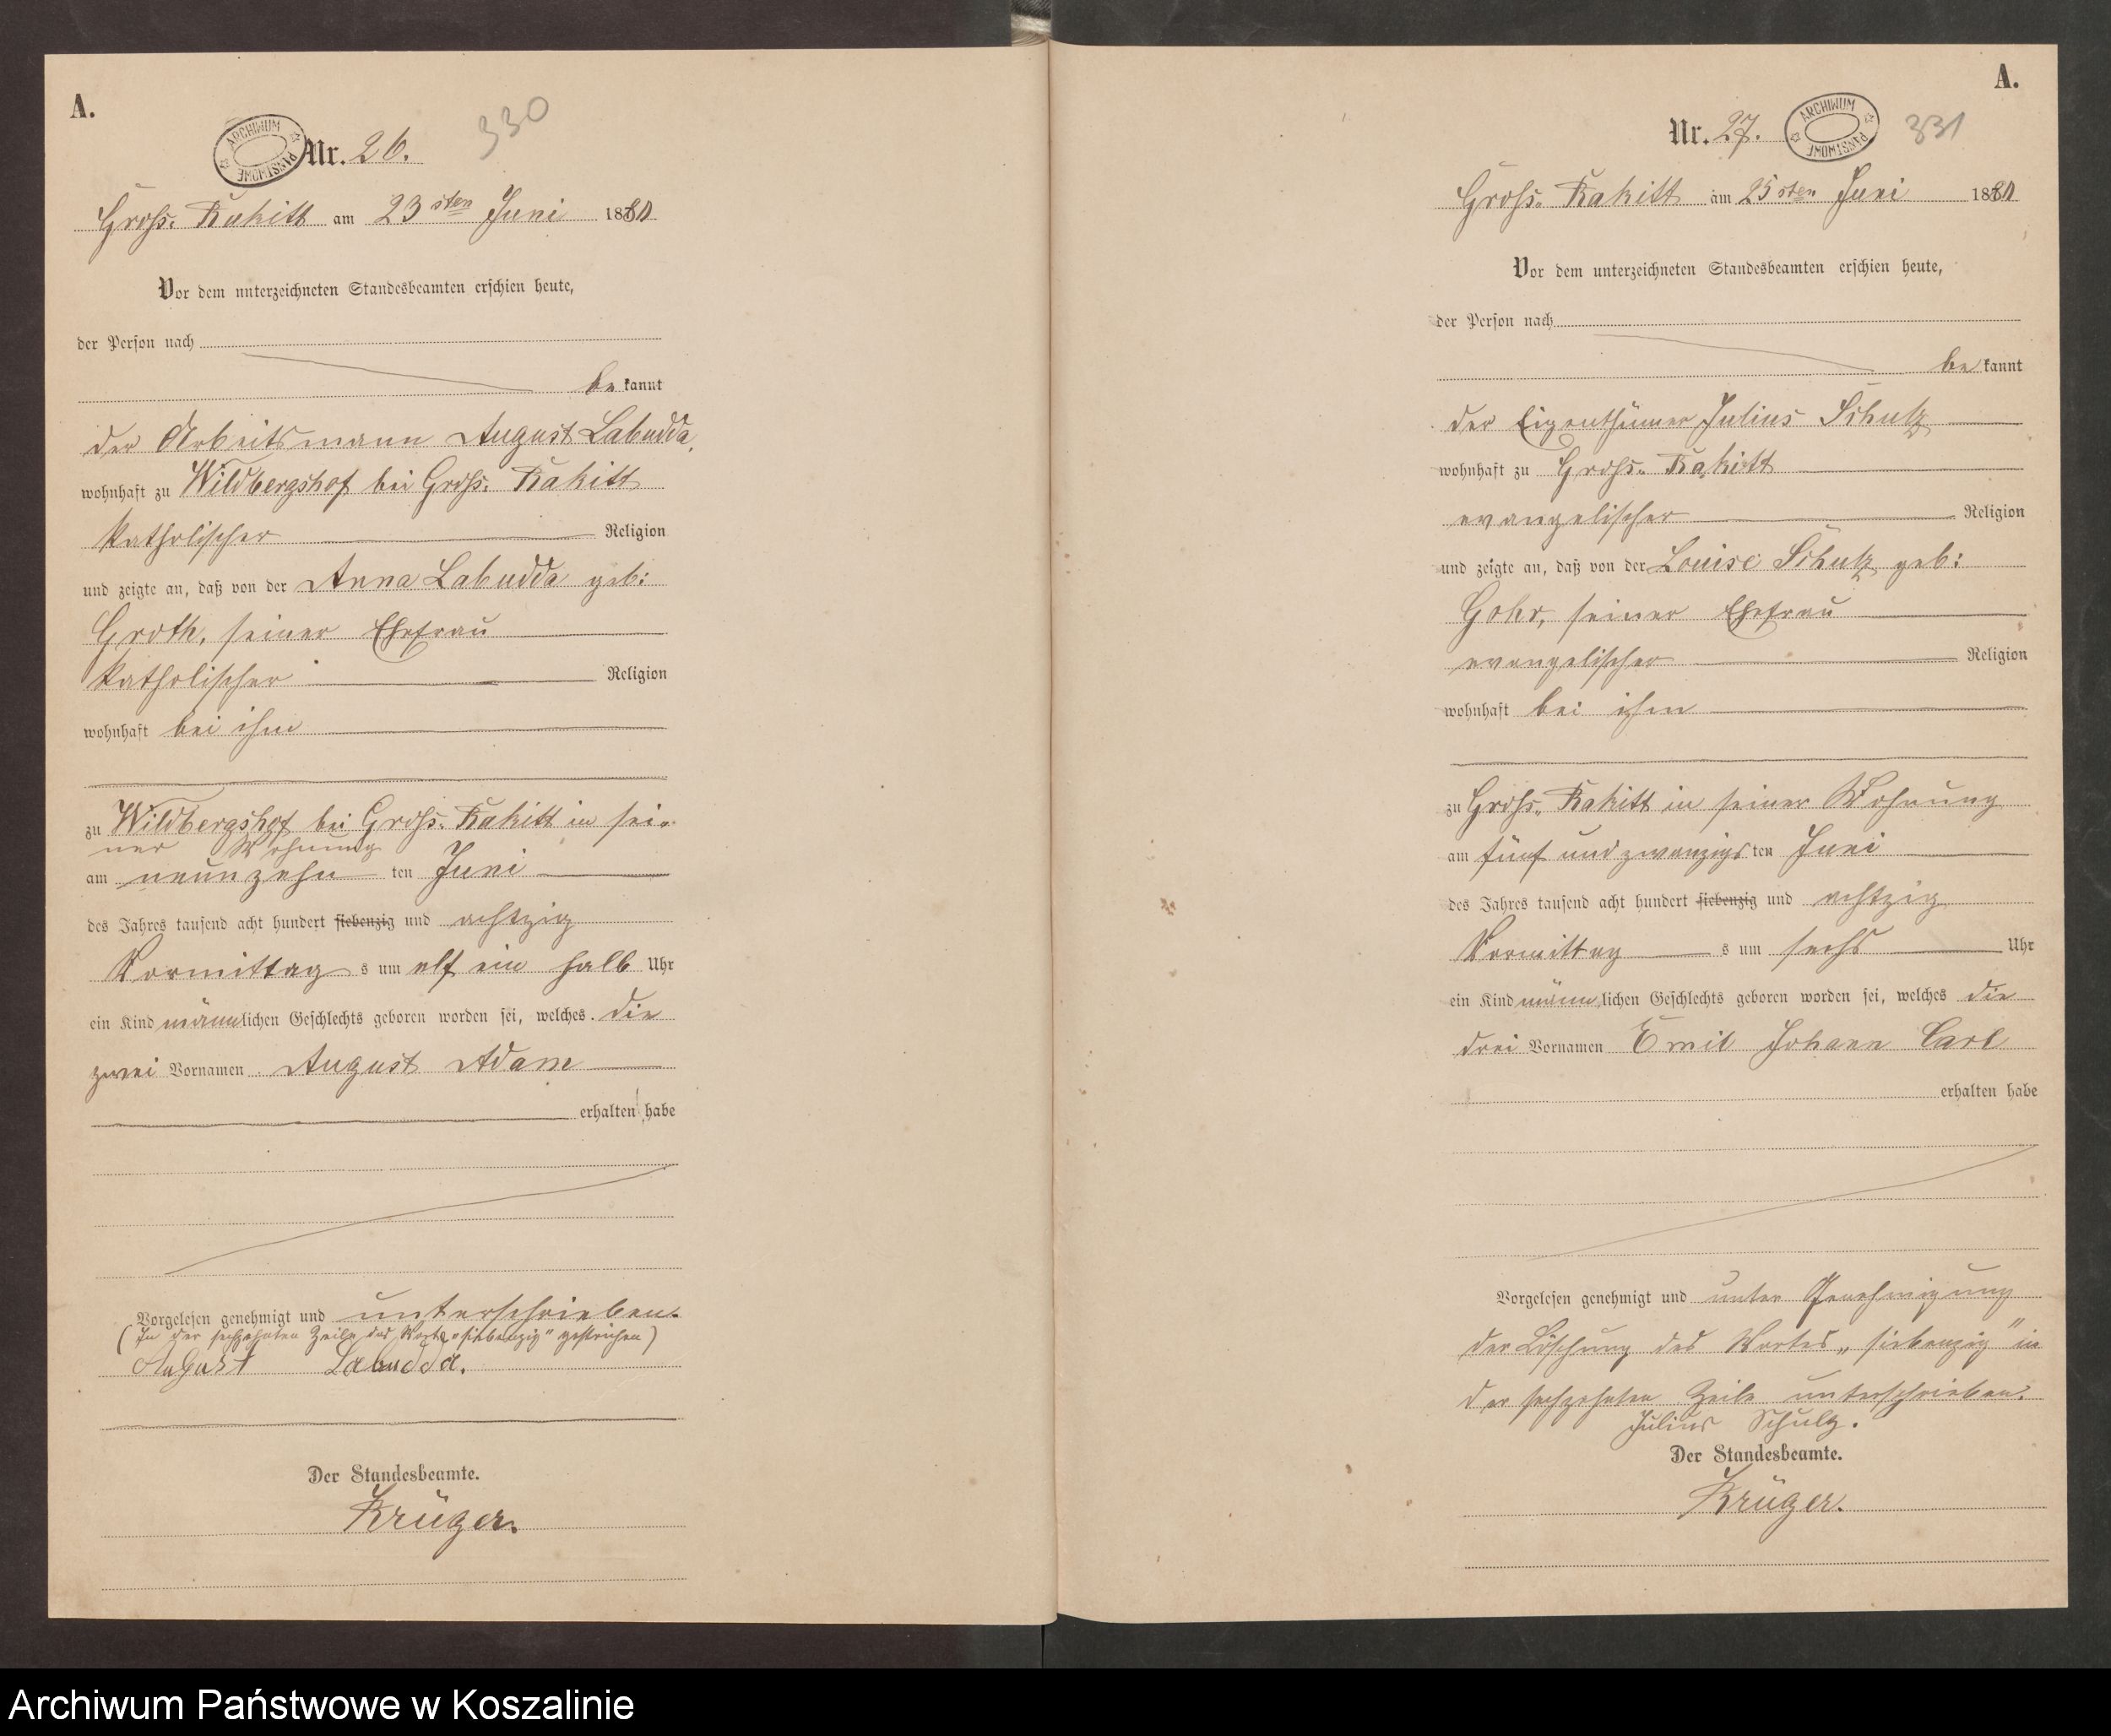 A.
ARCHIWUM PAŃSTWOWE
Nr. 26.
330
Groß-Rakitt am 23sten Juni 1880
Vor dem unterzeichneten Standesbeamten erschien heute,
der Person nach
be kannt
der Arbeitsmann August Labudda,
wohnhaft zu Wildbergshof bei Groß-Rakitt
katholischer Religion
und zeigte an, daß von der Anna Labudda geb:
Groth, seiner Ehefrau
katholischer Religion
wohnhaft bei ihm
zu Wildbergshof bei Groß-Rakitt in sei-
ner Wohnung
am neunzehn ten Juni
des Jahres tausend acht hundert siebenzig und achtzig
Vormittag s um elf ein halb Uhr
ein Kind männlichen Geschlechts geboren worden sei, welches die
zwei Vornamen August Adam
erhalten habe
Vorgelesen genehmigt und unterschrieben.
(In der sechzehnten Zeile das Wort „siebenzig" gestrichen)
August Labudda.
Der Standesbeamte.
Krüger.
A.
Nr. 27.
ARCHIWUM PAŃSTWOWE
331
Groß-Rakitt am 25sten Juni 1880
Vor dem unterzeichneten Standesbeamten erschien heute,
der Person nach
be kannt
der Eigenthümer Julius Schulz
wohnhaft zu Groß-Rakitt
evangelischer Religion
und zeigte an, daß von der Louise Schulz geb:
Gohr, seiner Ehefrau
evangelischer Religion
wohnhaft bei ihm
zu Groß-Rakitt in seiner Wohnung
am fünf und zwanzigs ten Juni
des Jahres tausend acht hundert siebenzig und achtzig
Vormittag s um sechs Uhr
ein Kind männlichen Geschlechts geboren worden sei, welches die
drei Vornamen Emil Johann Carl
erhalten habe
Vorgelesen genehmigt und unter Genehmigung
der Löschung des Wortes „siebenzig" in
der sechzehnten Zeile unterschrieben.
Julius Schulz.
Der Standesbeamte.
Krüger.
Archiwum Państwowe w Koszalinie